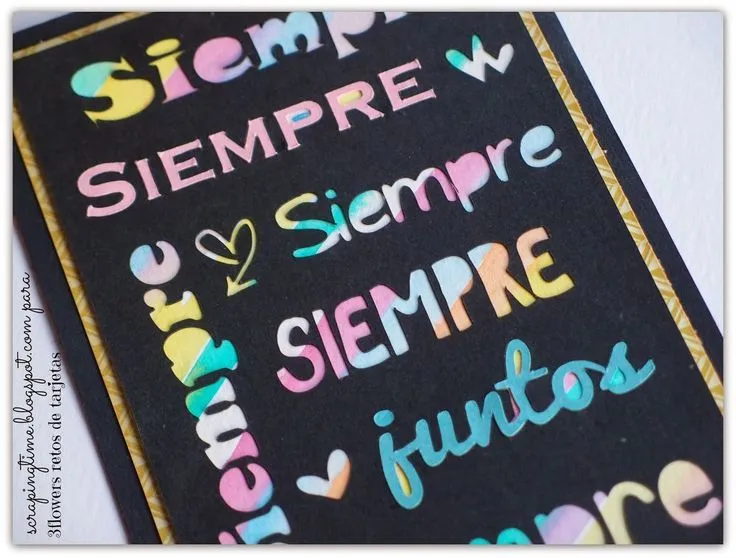 Siempre
SIEMPRE
Siempre
SIEMPRE
juntos
siempre
siempre
scrapingtime.blogspot.com para
3flowers retos de tarjetas